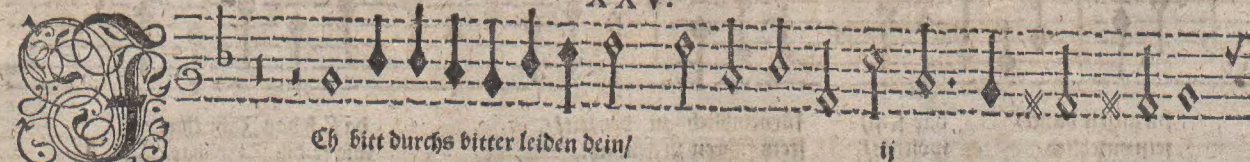 XXV.
ICh bitt durchs bitter leiden dein/ ij